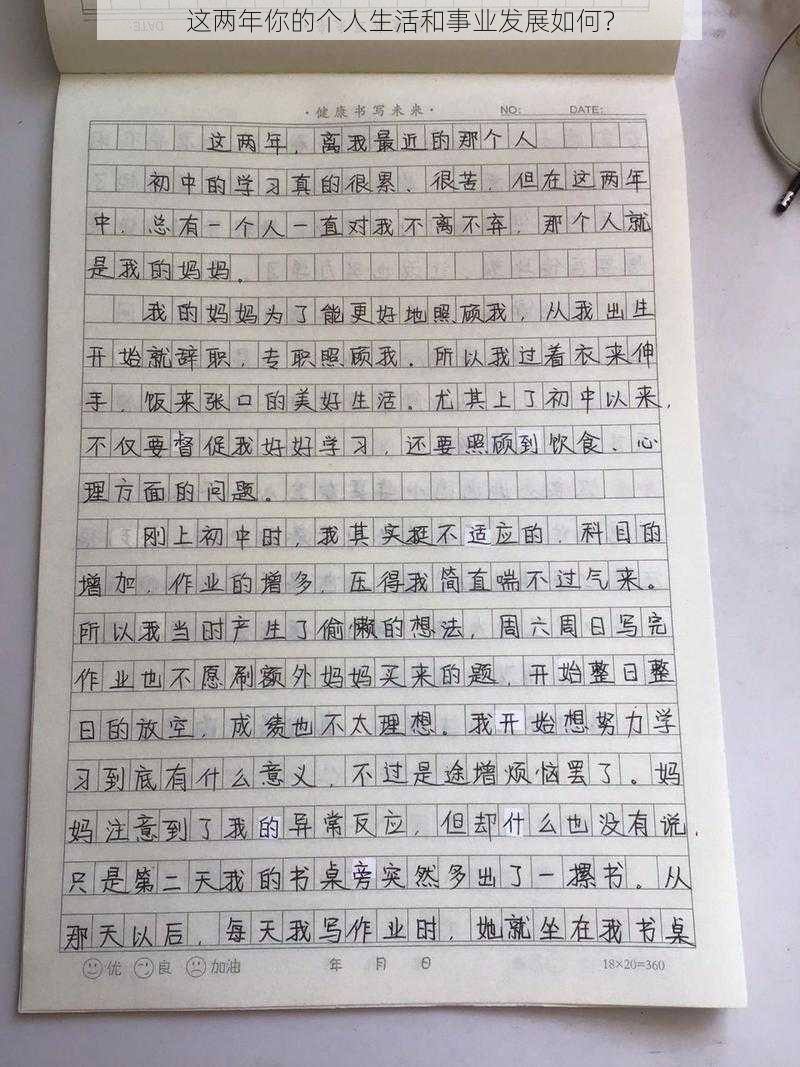 这两年你的个人生活和事业发展如何？
DATE:
·健康书写未来· NO: DATE:
这两年，离我最近的那个人
初中的学习真的很累、很苦，但在这两年
中，总有一个人一直对我不离不弃，那个人就
是我的妈妈。
我的妈妈为了能更好地照顾我，从我出生
开始就辞职，专职照顾我。所以我过着衣来伸
手，饭来张口的美好生活。尤其上了初中以来，
不仅要督促我好好学习，还要照顾到饮食、心
理方面的问题。
刚上初中时，我其实挺不适应的，科目的
增加，作业的增多，压得我简直喘不过气来。
所以我当时产生了偷懒的想法，周六周日写完
作业也不愿刷额外妈妈买来的题，开始整日整
日的放空，成绩也不太理想。我开始想努力学
习到底有什么意义，不过是途增烦恼罢了。妈
妈注意到了我的异常反应，但却什么也没有说，
只是第二天我的书桌旁突然多出了一摞书。从
那天以后，每天我写作业时，她就坐在我书桌
优 良 加油 年 月 日 18×20=360